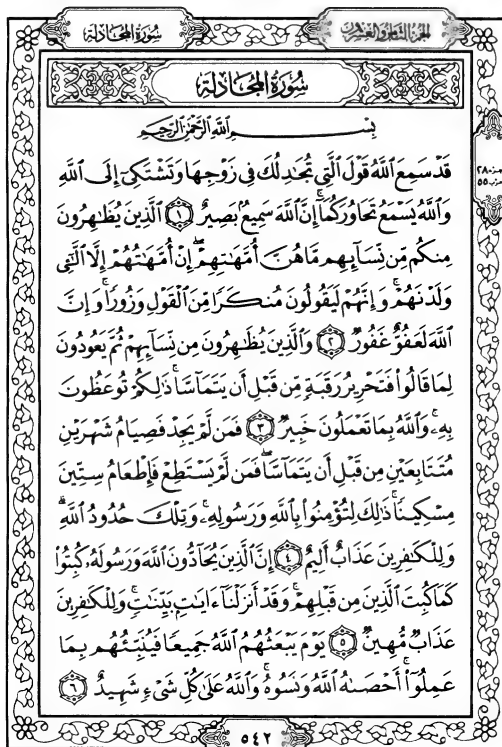 سُورَةُ المُجَادلَة
الجُزءُ الثَّامِنُ وَالعِشْرُونَ
سُورَةُ المُجَادلَة
بِسْمِ ٱللَّهِ ٱلرَّحْمَٰنِ ٱلرَّحِيمِ
قَدْ سَمِعَ ٱللَّهُ قَوْلَ ٱلَّتِي تُجَٰدِلُكَ فِي زَوْجِهَا وَتَشْتَكِيٓ إِلَى ٱللَّهِ
وَٱللَّهُ يَسْمَعُ تَحَاوُرَكُمَآ إِنَّ ٱللَّهَ سَمِيعٌۢ بَصِيرٌ ١ ٱلَّذِينَ يُظَٰهِرُونَ
مِنكُم مِّن نِّسَآئِهِم مَّا هُنَّ أُمَّهَٰتِهِمْ ۖ إِنْ أُمَّهَٰتُهُمْ إِلَّا ٱلَّٰٓـِٔي
وَلَدْنَهُمْ ۚ وَإِنَّهُمْ لَيَقُولُونَ مُنكَرًا مِّنَ ٱلْقَوْلِ وَزُورًا ۚ وَإِنَّ
ٱللَّهَ لَعَفُوٌّ غَفُورٌ ٢ وَٱلَّذِينَ يُظَٰهِرُونَ مِن نِّسَآئِهِمْ ثُمَّ يَعُودُونَ
لِمَا قَالُوا۟ فَتَحْرِيرُ رَقَبَةٍ مِّن قَبْلِ أَن يَتَمَآسَّا ۚ ذَٰلِكُمْ تُوعَظُونَ
بِهِۦ ۚ وَٱللَّهُ بِمَا تَعْمَلُونَ خَبِيرٌ ٣ فَمَن لَّمْ يَجِدْ فَصِيَامُ شَهْرَيْنِ
مُتَتَابِعَيْنِ مِن قَبْلِ أَن يَتَمَآسَّا ۖ فَمَن لَّمْ يَسْتَطِعْ فَإِطْعَامُ سِتِّينَ
مِسْكِينًا ۚ ذَٰلِكَ لِتُؤْمِنُوا۟ بِٱللَّهِ وَرَسُولِهِۦ ۚ وَتِلْكَ حُدُودُ ٱللَّهِ ۗ
وَلِلْكَٰفِرِينَ عَذَابٌ أَلِيمٌ ٤ إِنَّ ٱلَّذِينَ يُحَآدُّونَ ٱللَّهَ وَرَسُولَهُۥ كُبِتُوا۟
كَمَا كُبِتَ ٱلَّذِينَ مِن قَبْلِهِمْ ۚ وَقَدْ أَنزَلْنَآ ءَايَٰتٍۭ بَيِّنَٰتٍ ۚ وَلِلْكَٰفِرِينَ
عَذَابٌ مُّهِينٌ ٥ يَوْمَ يَبْعَثُهُمُ ٱللَّهُ جَمِيعًا فَيُنَبِّئُهُم بِمَا
عَمِلُوٓا۟ ۚ أَحْصَىٰهُ ٱللَّهُ وَنَسُوهُ ۚ وَٱللَّهُ عَلَىٰ كُلِّ شَىْءٍ شَهِيدٌ ٦
٥٤٢